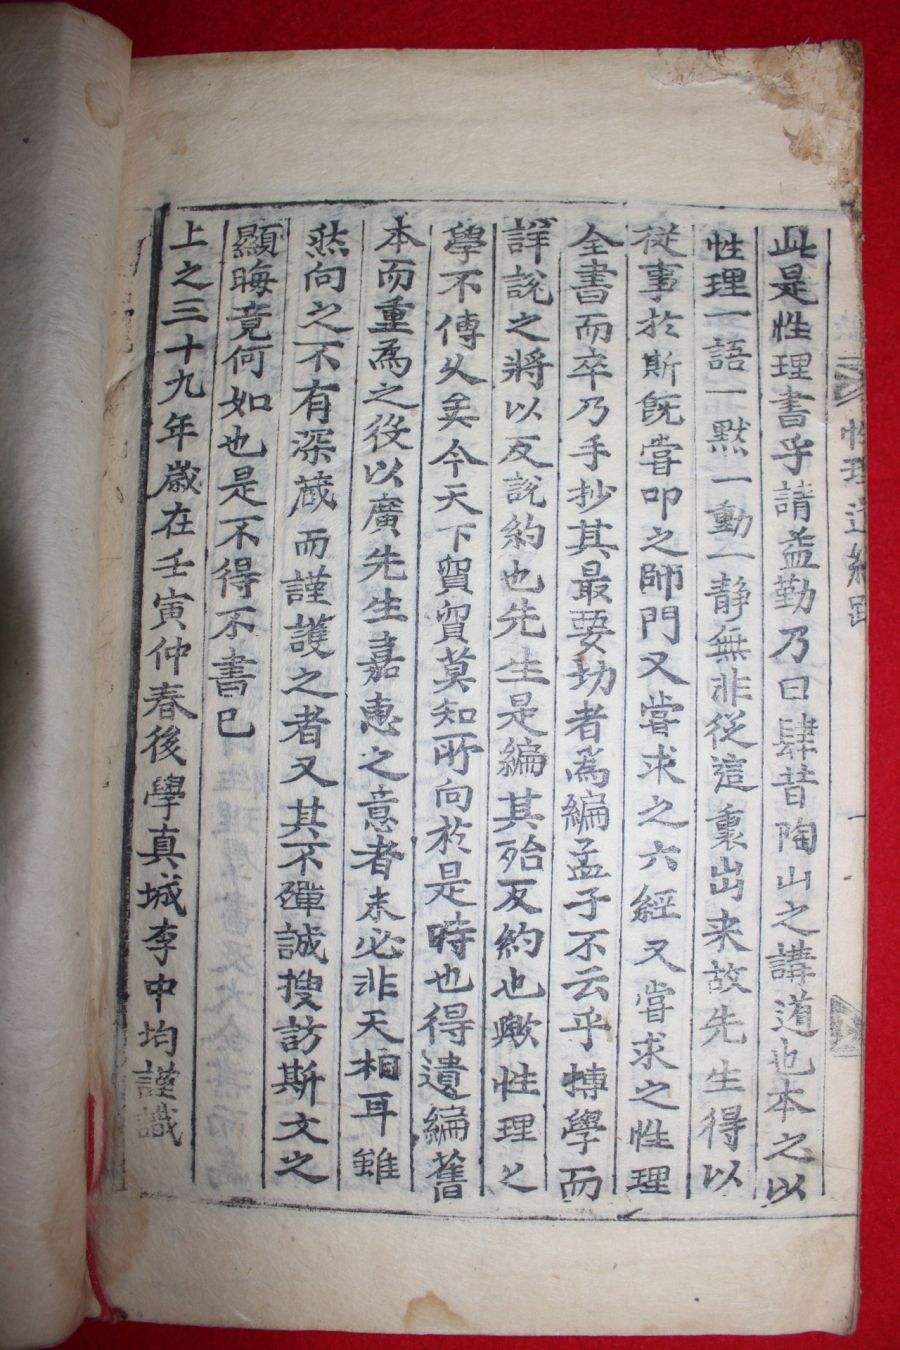 此是性理書乎請益勤乃曰肆昔陶山之講道也本之以
性理一語一默一動一静無非從這裏出来故先生得以
從事於斯旣嘗叩之師門又嘗求之六經又嘗求之性理
全書而卒乃手抄其最要切者為編孟子不云乎博學而
詳說之將以反說約也先生是編其殆反約也歟性理之
學不傳久矣今天下貿貿莫知所向於是時也得遺編舊
本而重為之役以廣先生嘉惠之意者未必非天相耳雖
然向之不有深蔵而謹護之者又其不殫誠搜訪斯文之
顯晦竟何如也是不得不書已
上之三十九年歲在壬寅仲春後學真城李中均謹識
性理
一